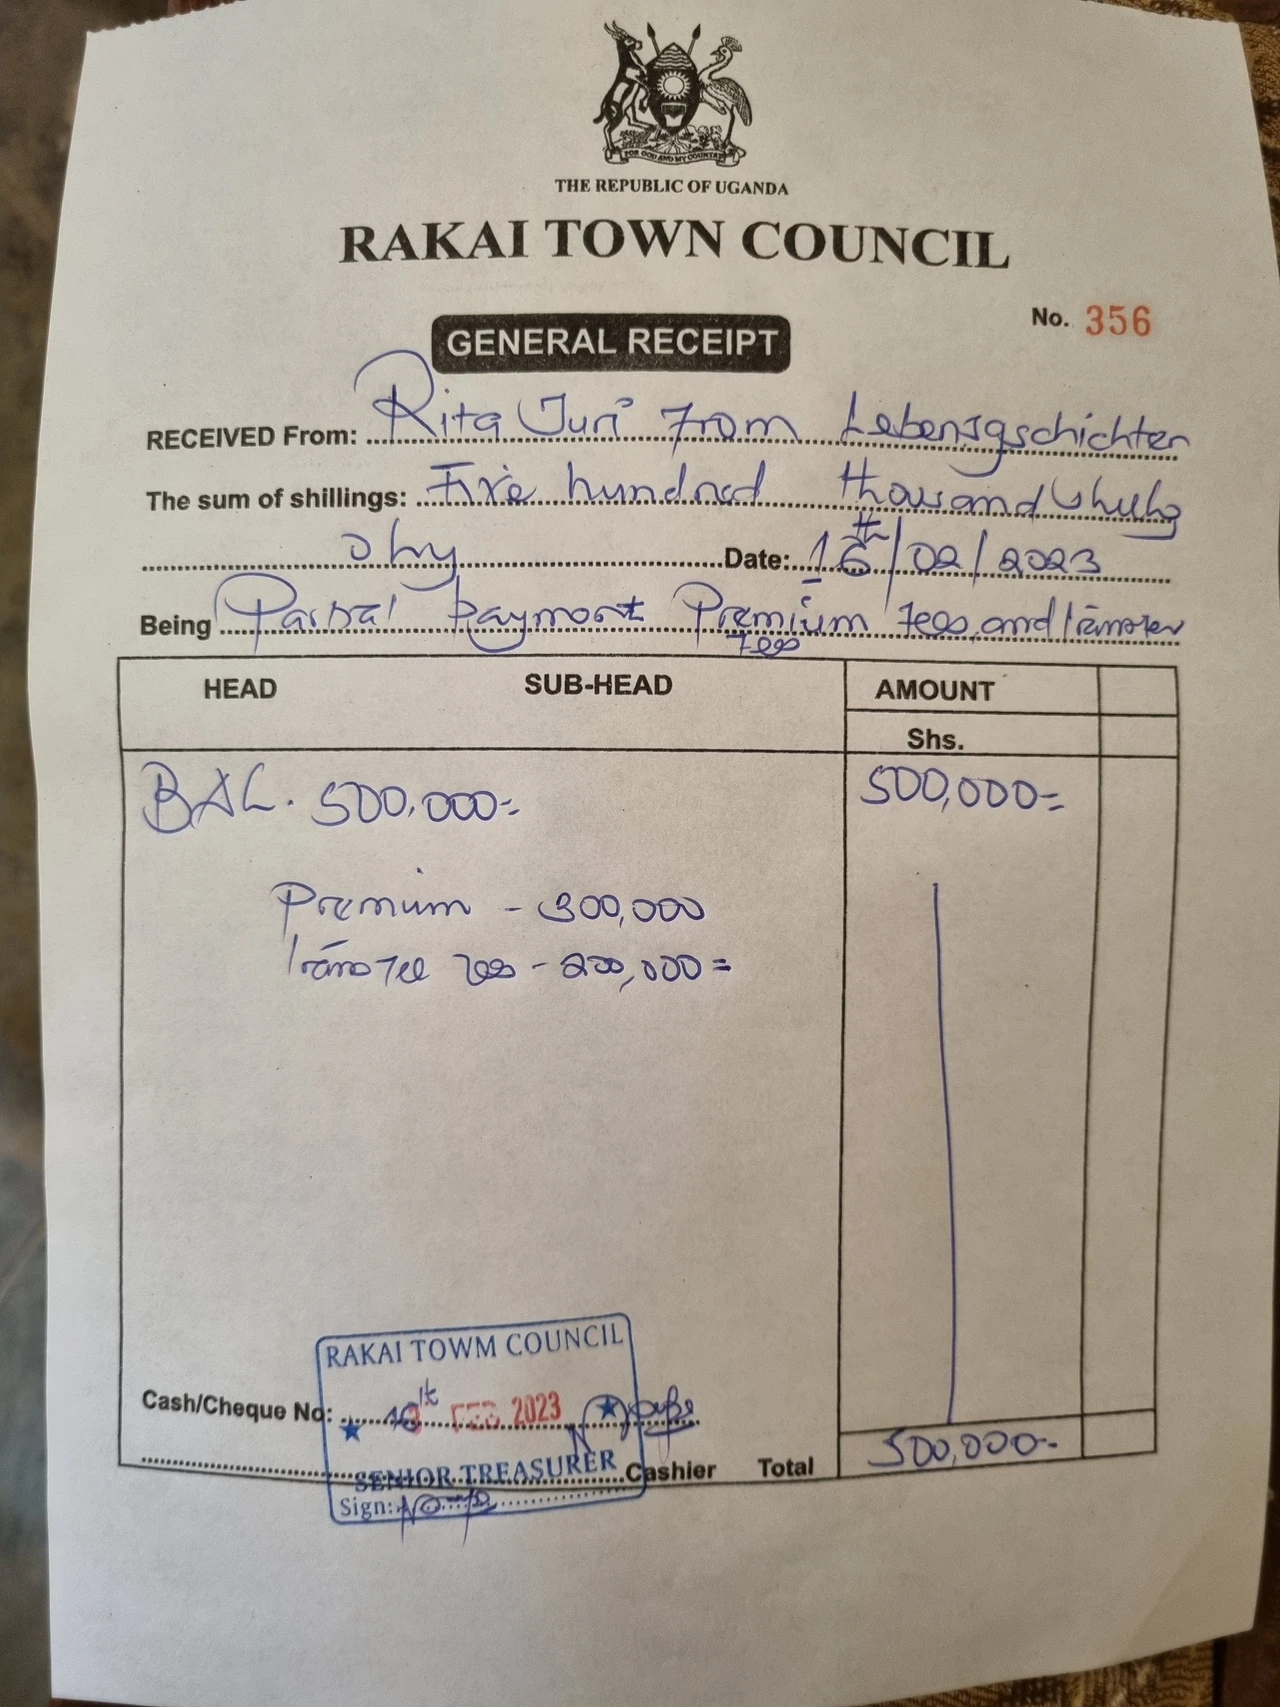 FOR GOD AND MY COUNTRY
THE REPUBLIC OF UGANDA
RAKAI TOWN COUNCIL
No. 356
GENERAL RECEIPT
RECEIVED From: Rita Juri From Lebensgschichten
The sum of shillings: Five hundred thousand shillings
only Date: 16th/02/2023
Being Partial Payment Premium fees, and transfer
fees
HEAD SUB-HEAD AMOUNT
Shs.
BAL. 500,000= 500,000=
Premium - 300,000
Transfer fees - 200,000=
RAKAI TOWM COUNCIL
Cash/Cheque No: 16th FEB 2023
SENIOR TREASURER Cashier Total 500,000-
Sign: